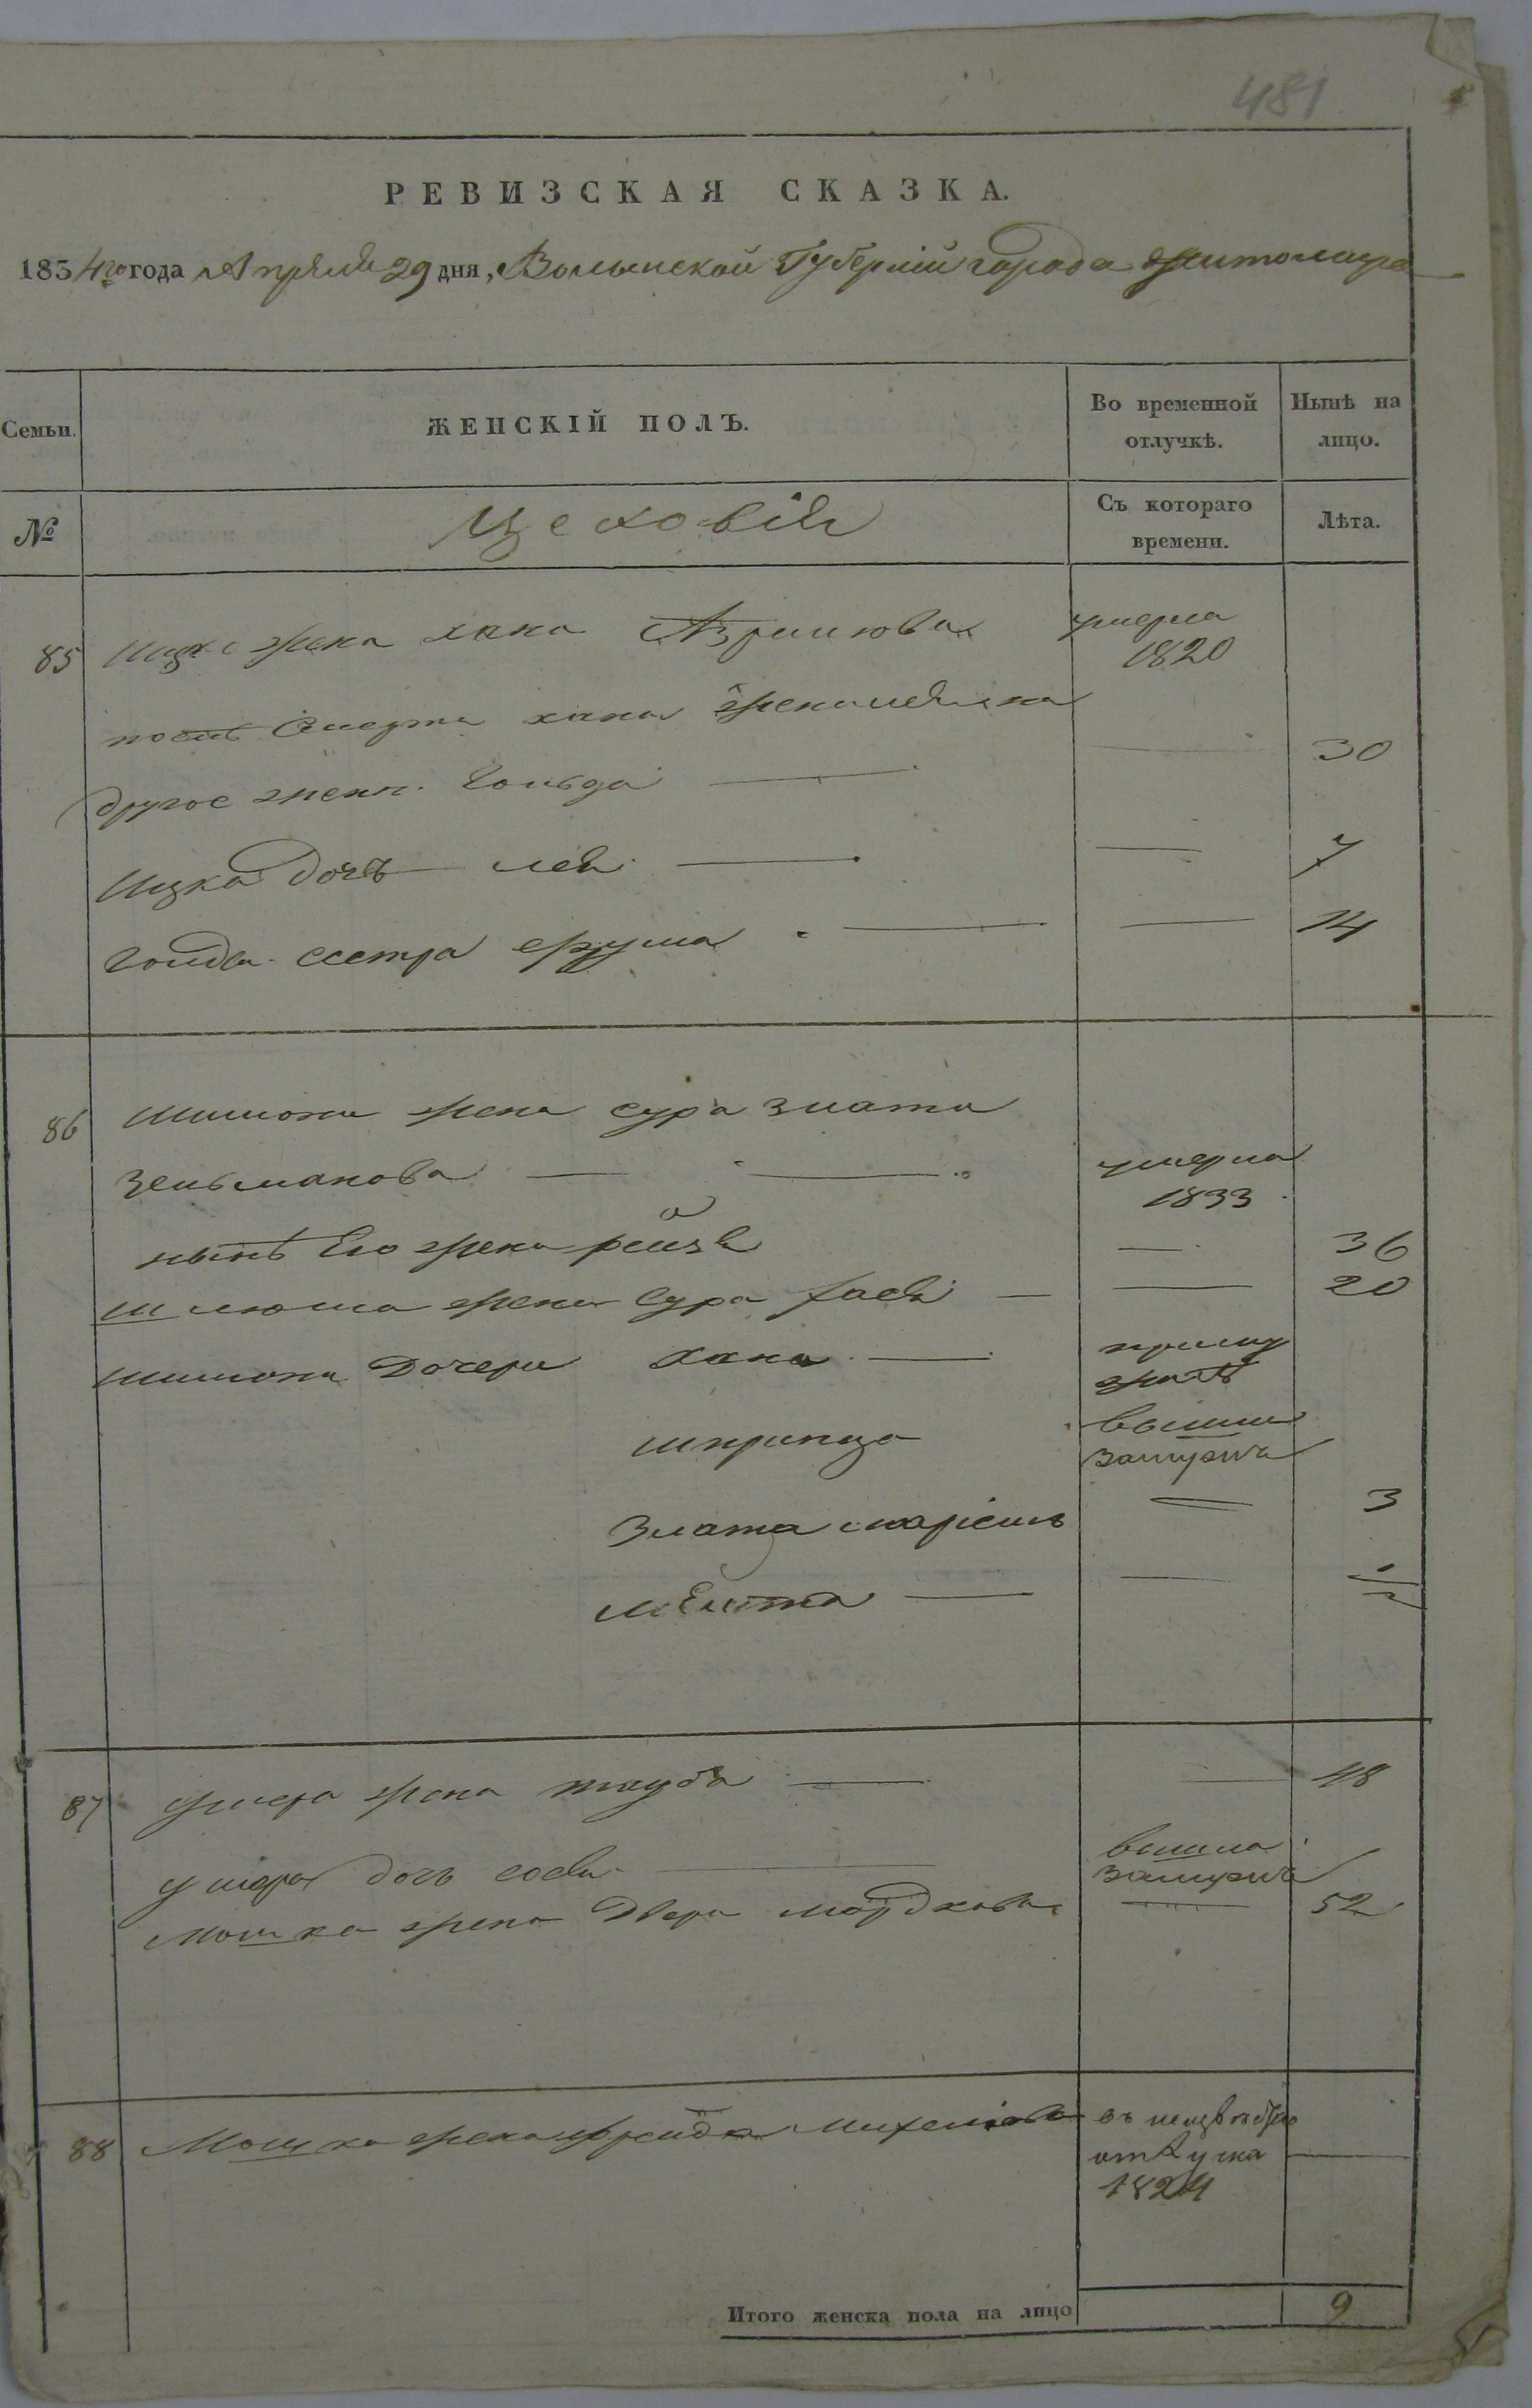 481
РЕВИЗСКАЯ СКАЗКА.
1834го года Апреля 29 дня, Волынской Губерніи города Житомира
Семьи.
ЖЕНСКІЙ ПОЛЪ.
Во временной отлучкѣ.
Нынѣ на лицо.
№
Цеховія
Съ котораго времени.
Лѣта.
85 Ицка жена хана умерла
1820
посли Смерти ханы
другое жена Гольда — — 30
Ицка Дочъ лея — — 7
Гольды сестра — — 14
86 Шимона жена сура злата
Зельманова — — умерла
1833
нынѣ Его жена рейза — 36
жена Сура — — 20
Шимона Дочери Хана —
шпринца вышла
замужъ
Злата маріемъ — 3
— —
87 Ушера жена тауба — — 48
ушера дочъ сося — вышла
замужъ
Мошка жена Двера мордкова — 52
88 Мошка жена фрейда въ
отлучка —
1824
Итого женска пола на лицо 9